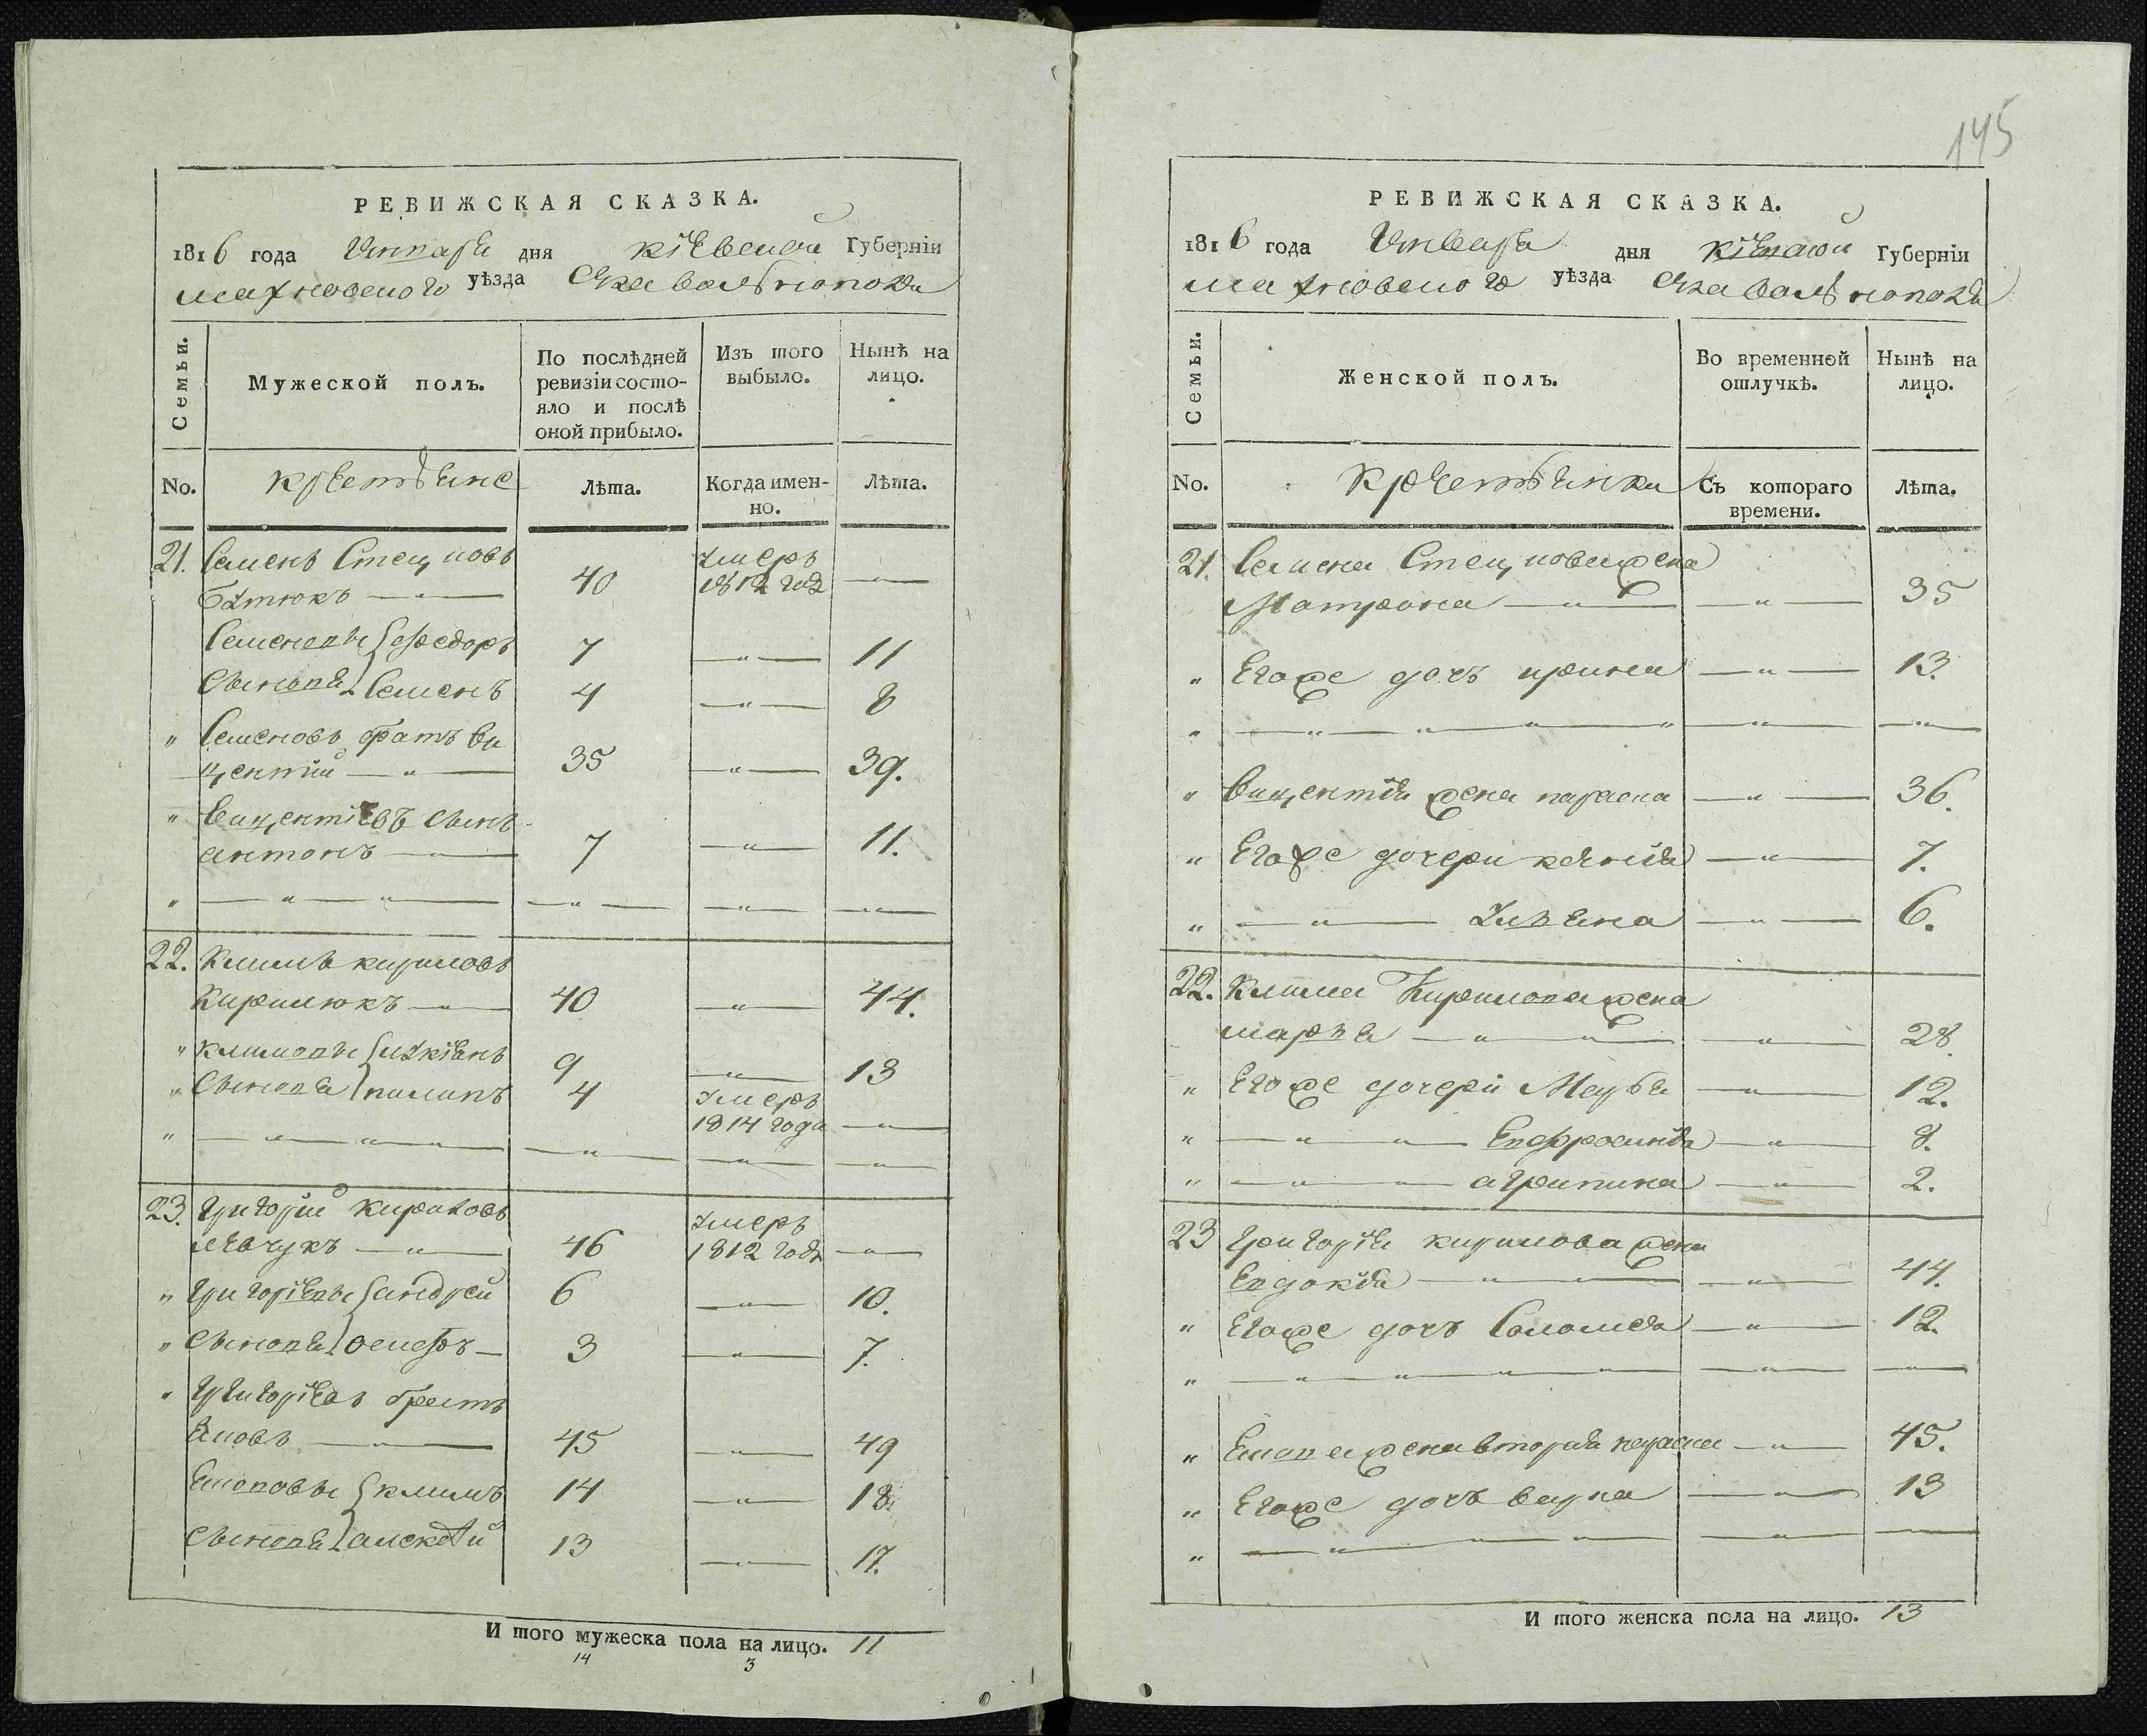 РЕВИЖСКАЯ СКАЗКА.
1816 года Января дня Кіевской Губерніи
Махновского уѣзда
Семьи.
Мужеской полъ.
По послѣдней ревизіи состояло и послѣ оной прибыло.
Изъ того выбыло.
Нынѣ на лицо.
No.
крестьяне
Лѣта.
Когда именно.
Лѣта.
21. Семенъ Стецковъ умеръ
40 1812 год
Семеновы Федоръ 7 11
Сыновья Семенъ 4 8
" Семеновъ братъ Ви
центій 35 39.
" Вицентіевъ Сынъ
антонъ 7 11.
22. Климъ кириловъ
Кирилюкъ 40 44.
" климовы лукіянъ 9 13
" Сыновья пилипъ 4 умеръ
1814 года
23. Григорій Кириловъ умеръ
левчукъ 46 1812 года
" Григоріевы андрей 6 10.
" Сыновья 3 7.
" Григоріевъ братъ
Яковъ 45 49
климъ 14 18
Сыновья алексѣй 13 17.
И того мужеска пола на лицо. 11
14 3
145
РЕВИЖСКАЯ СКАЗКА.
1816 года Января дня Кіевской Губерніи
Махновского уѣзда
Семьи.
Женской полъ.
Во временной отлучкѣ.
Нынѣ на лицо.
No.
Крестьянки
Съ котораго времени.
Лѣта.
21. Семена Стецкова жена
Матрона 35
" Егоже дочъ ирина 13.
" Вицентія жена параска 36.
" Егоже дочери ксенія 7.
" Ульяна 6.
22. Клима Кирилова жена
марья 28
" Егоже дочери 12.
" Евфросинія 8.
" агрипина 2.
23 Григорія кирилова жена
Евдокія 44.
" Егоже дочъ Соломея 12.
" жена вторая параска 45.
" Егоже дочъ 13
И того женска пола на лицо. 13